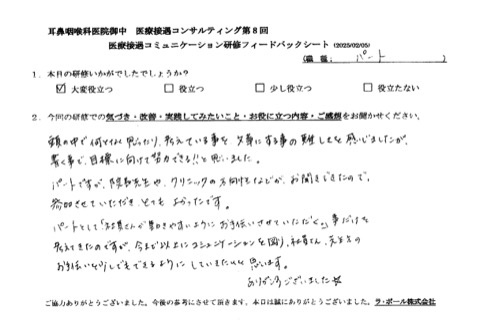 耳鼻咽喉科医院御中 医療接遇コンサルティング第8回
医療接遇コミュニケーション研修フィードバックシート (2025/02/05)
(職種: パート )
1. 本日の研修いかがでしたでしょうか?
☑ 大変役立つ □ 役立つ □ 少し役立つ □ 役立たない
2. 今回の研修での気づき・改善・実践してみたいこと・お役に立つ内容・ご感想をお聞かせください。
頭の中で何となく思ったり、考えている事を文章にする事の難しさを感じましたが、
書く事で、目標に向けて努力できる!!と思いました。
パートですが、院長先生や、クリニックの方向性などが、お聞きできたので、
参加させていただき、とてもよかったです。
パートとして「社員さんが働きやすいようにお手伝いさせていただく。」事だけを
考えてきたのですが、今まで以上にコミュニケーションを図り、社員さん、先生方の
お手伝いを少しでもできるようにしていきたいと思います。
ありがとうございました☆
ご協力ありがとうございました。今後の参考にさせて頂きます。本日は誠にありがとうございました。ラ・ポール株式会社